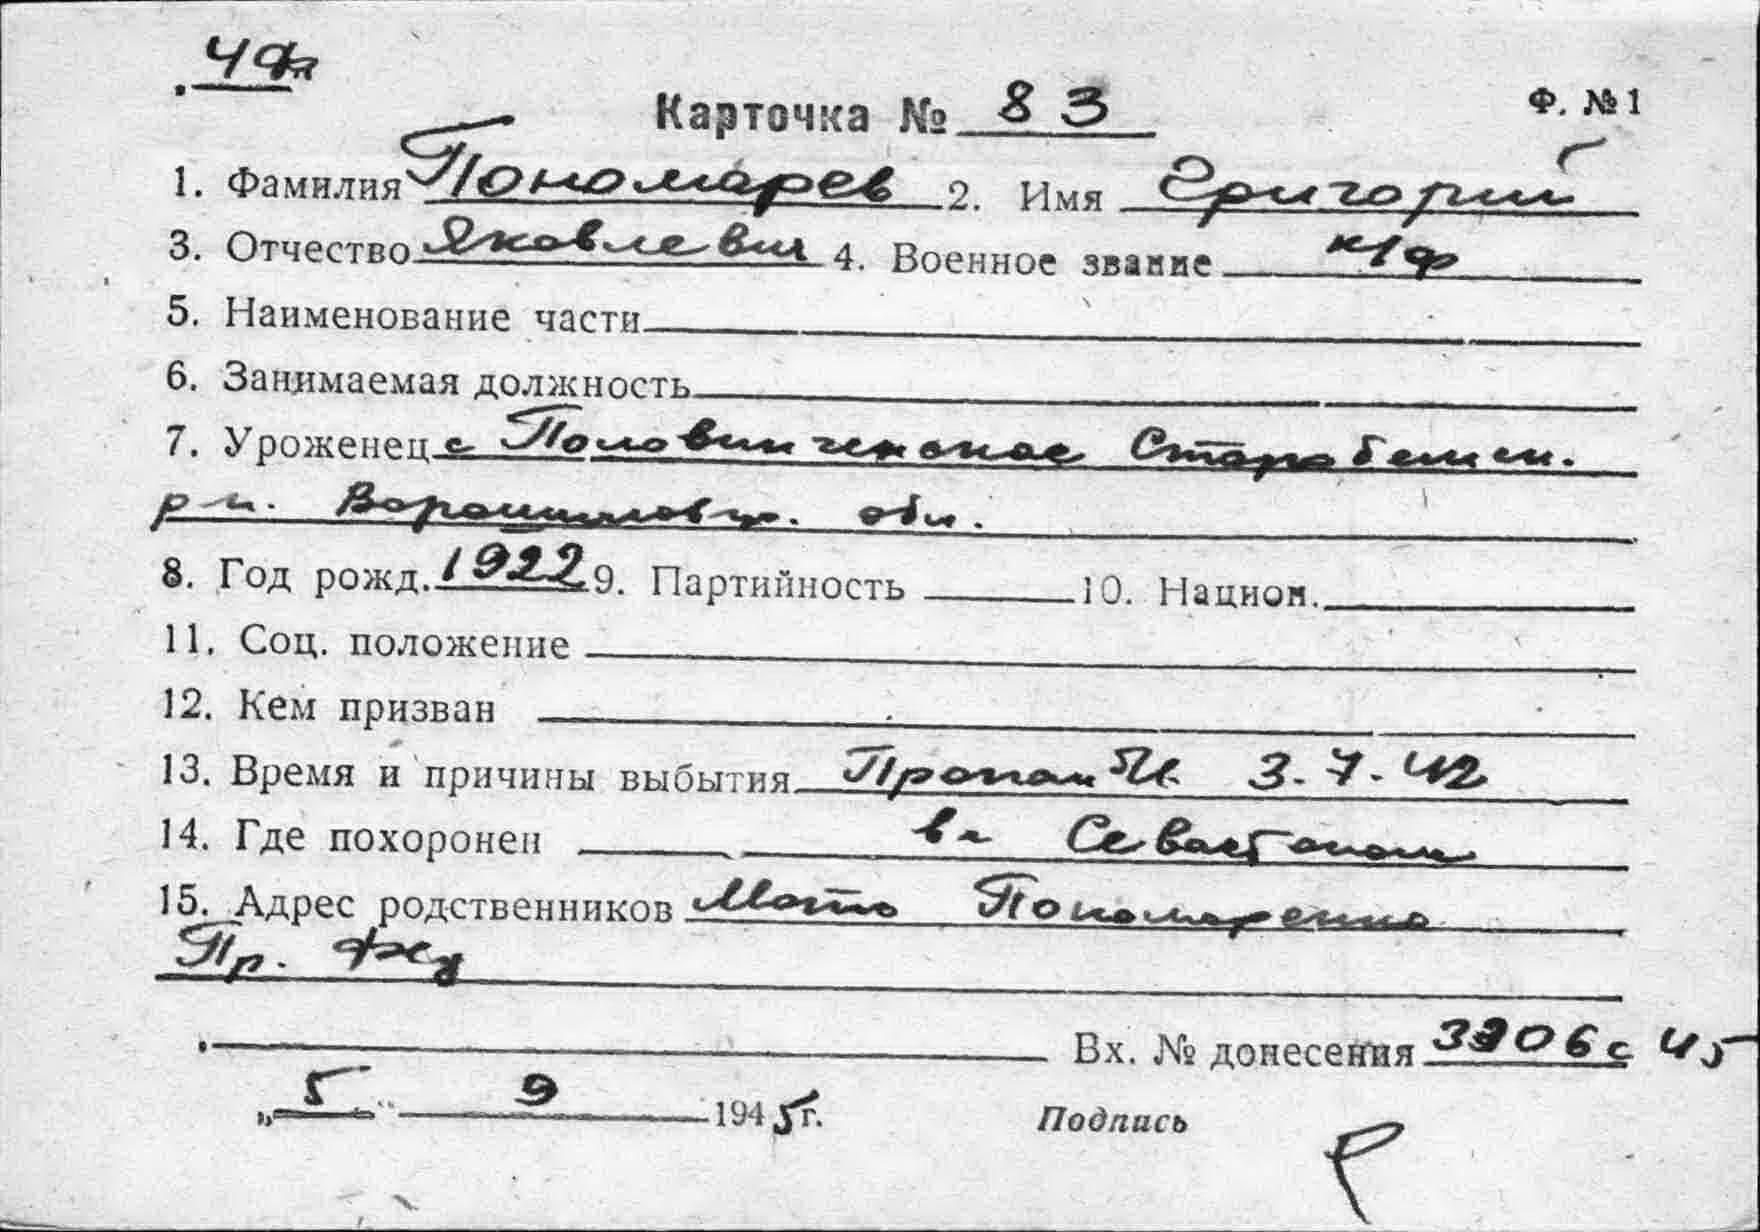 ЧФ
Карточка № 83
Ф. № 1
1. Фамилия Пономарев 2. Имя Григорий
3. Отчество Яковлевич 4. Военное звание к/ф
5. Наименование части
6. Занимаемая должность
7. Уроженец с Половинченское Старобельск.
р-н. Ворошиловгр. обл.
8. Год рожд. 1922 9. Партийность 10. Национ.
11. Соц. положение
12. Кем призван
13. Время и причины выбытия Пропал 3.7.42
14. Где похоронен в Севастополе
15. Адрес родственников Мать Пономаренко
Пр. Фед
Вх. № донесения 3906с 45
„5“ 9 1945 г. Подпись